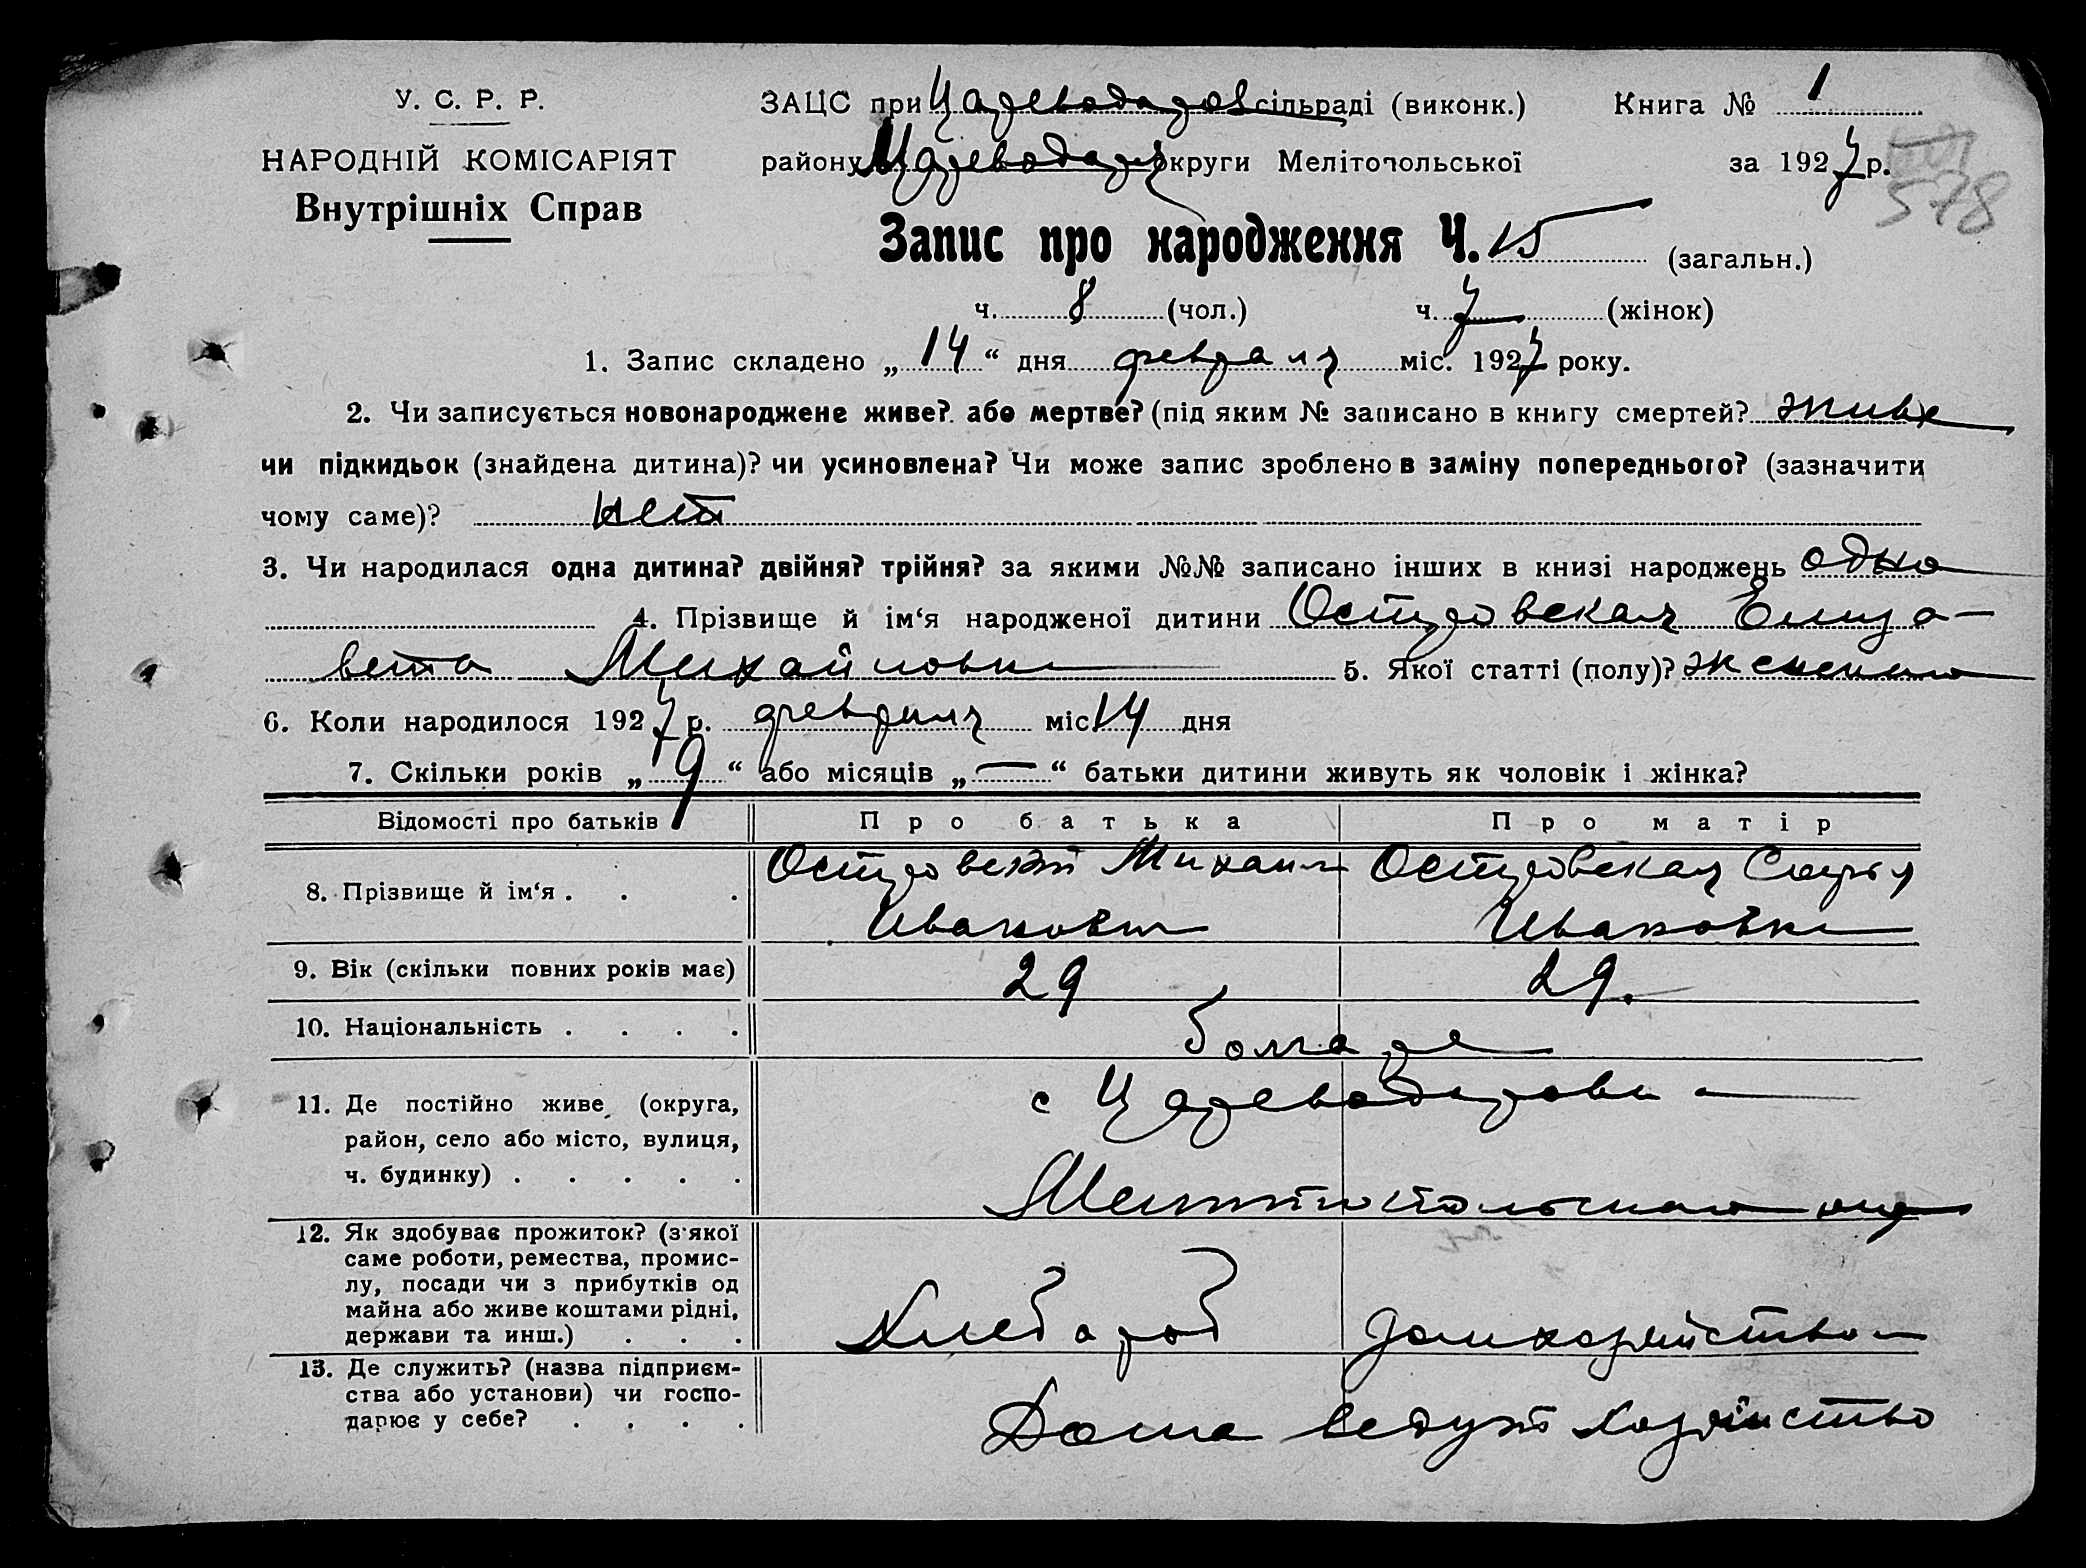 У. С. Р. Р.
НАРОДНІЙ КОМІСАРІЯТ
Внутрішніх Справ
ЗАЦС при Цареводаров сільраді (виконк.) Книга № 1
району Цареводар округи Мелітопольської за 1927 р.
578
Запис про народження Ч. 15 (загальн.)
ч. 8 (чол.) ч. 7 (жінок)
1. Запис складено „ 14 “ дня февраля міс. 1927 року.
2. Чи записується новонароджене живе? або мертве? (під яким № записано в книгу смертей? живе
чи підкидьок (знайдена дитина)? чи усиновлена? Чи може запис зроблено в заміну попереднього? (зазначити
чому саме)? нет
3. Чи народилася одна дитина? двійня? трійня? за якими №№ записано інших в книзі народжень одно
4. Прізвище й ім‘я народженої дитини Островская Елиза-
вета Михайловна 5. Якої статті (полу)? женского
6. Коли народилося 1927 р. февраля міс 14 дня
7. Скільки років „ 9 “ або місяців „ — “ батьки дитини живуть як чоловік і жінка?
Відомості про батьків Про батька Про матір
8. Прізвище й ім‘я . . . Островский Михаил Островская Софья
Иванович Ивановна
9. Вік (скільки повних років має) 29 29.
10. Національність . . . . болгаре
11. Де постійно живе (округа, с Цареводаровка
район, село або місто, вулиця,
ч. будинку) . . . . . Мелитопольского окр
12. Як здобуває прожиток? (з'якої
саме роботи, ремества, промис-
лу, посади чи з прибутків од
майна або живе коштами рідні,
держави та инш.) . . . Хлебороб домхозяйство
13. Де служить? (назва підприєм-
ства або установи) чи госпо-
дарює у себе? . . . . Дома ведут хозяйство